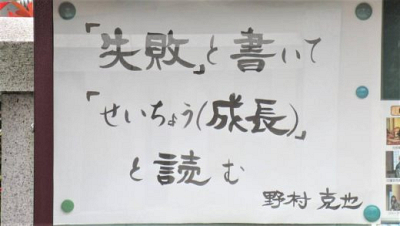 「失敗」と書いて
「せいちょう(成長)」
と読む
野村克也